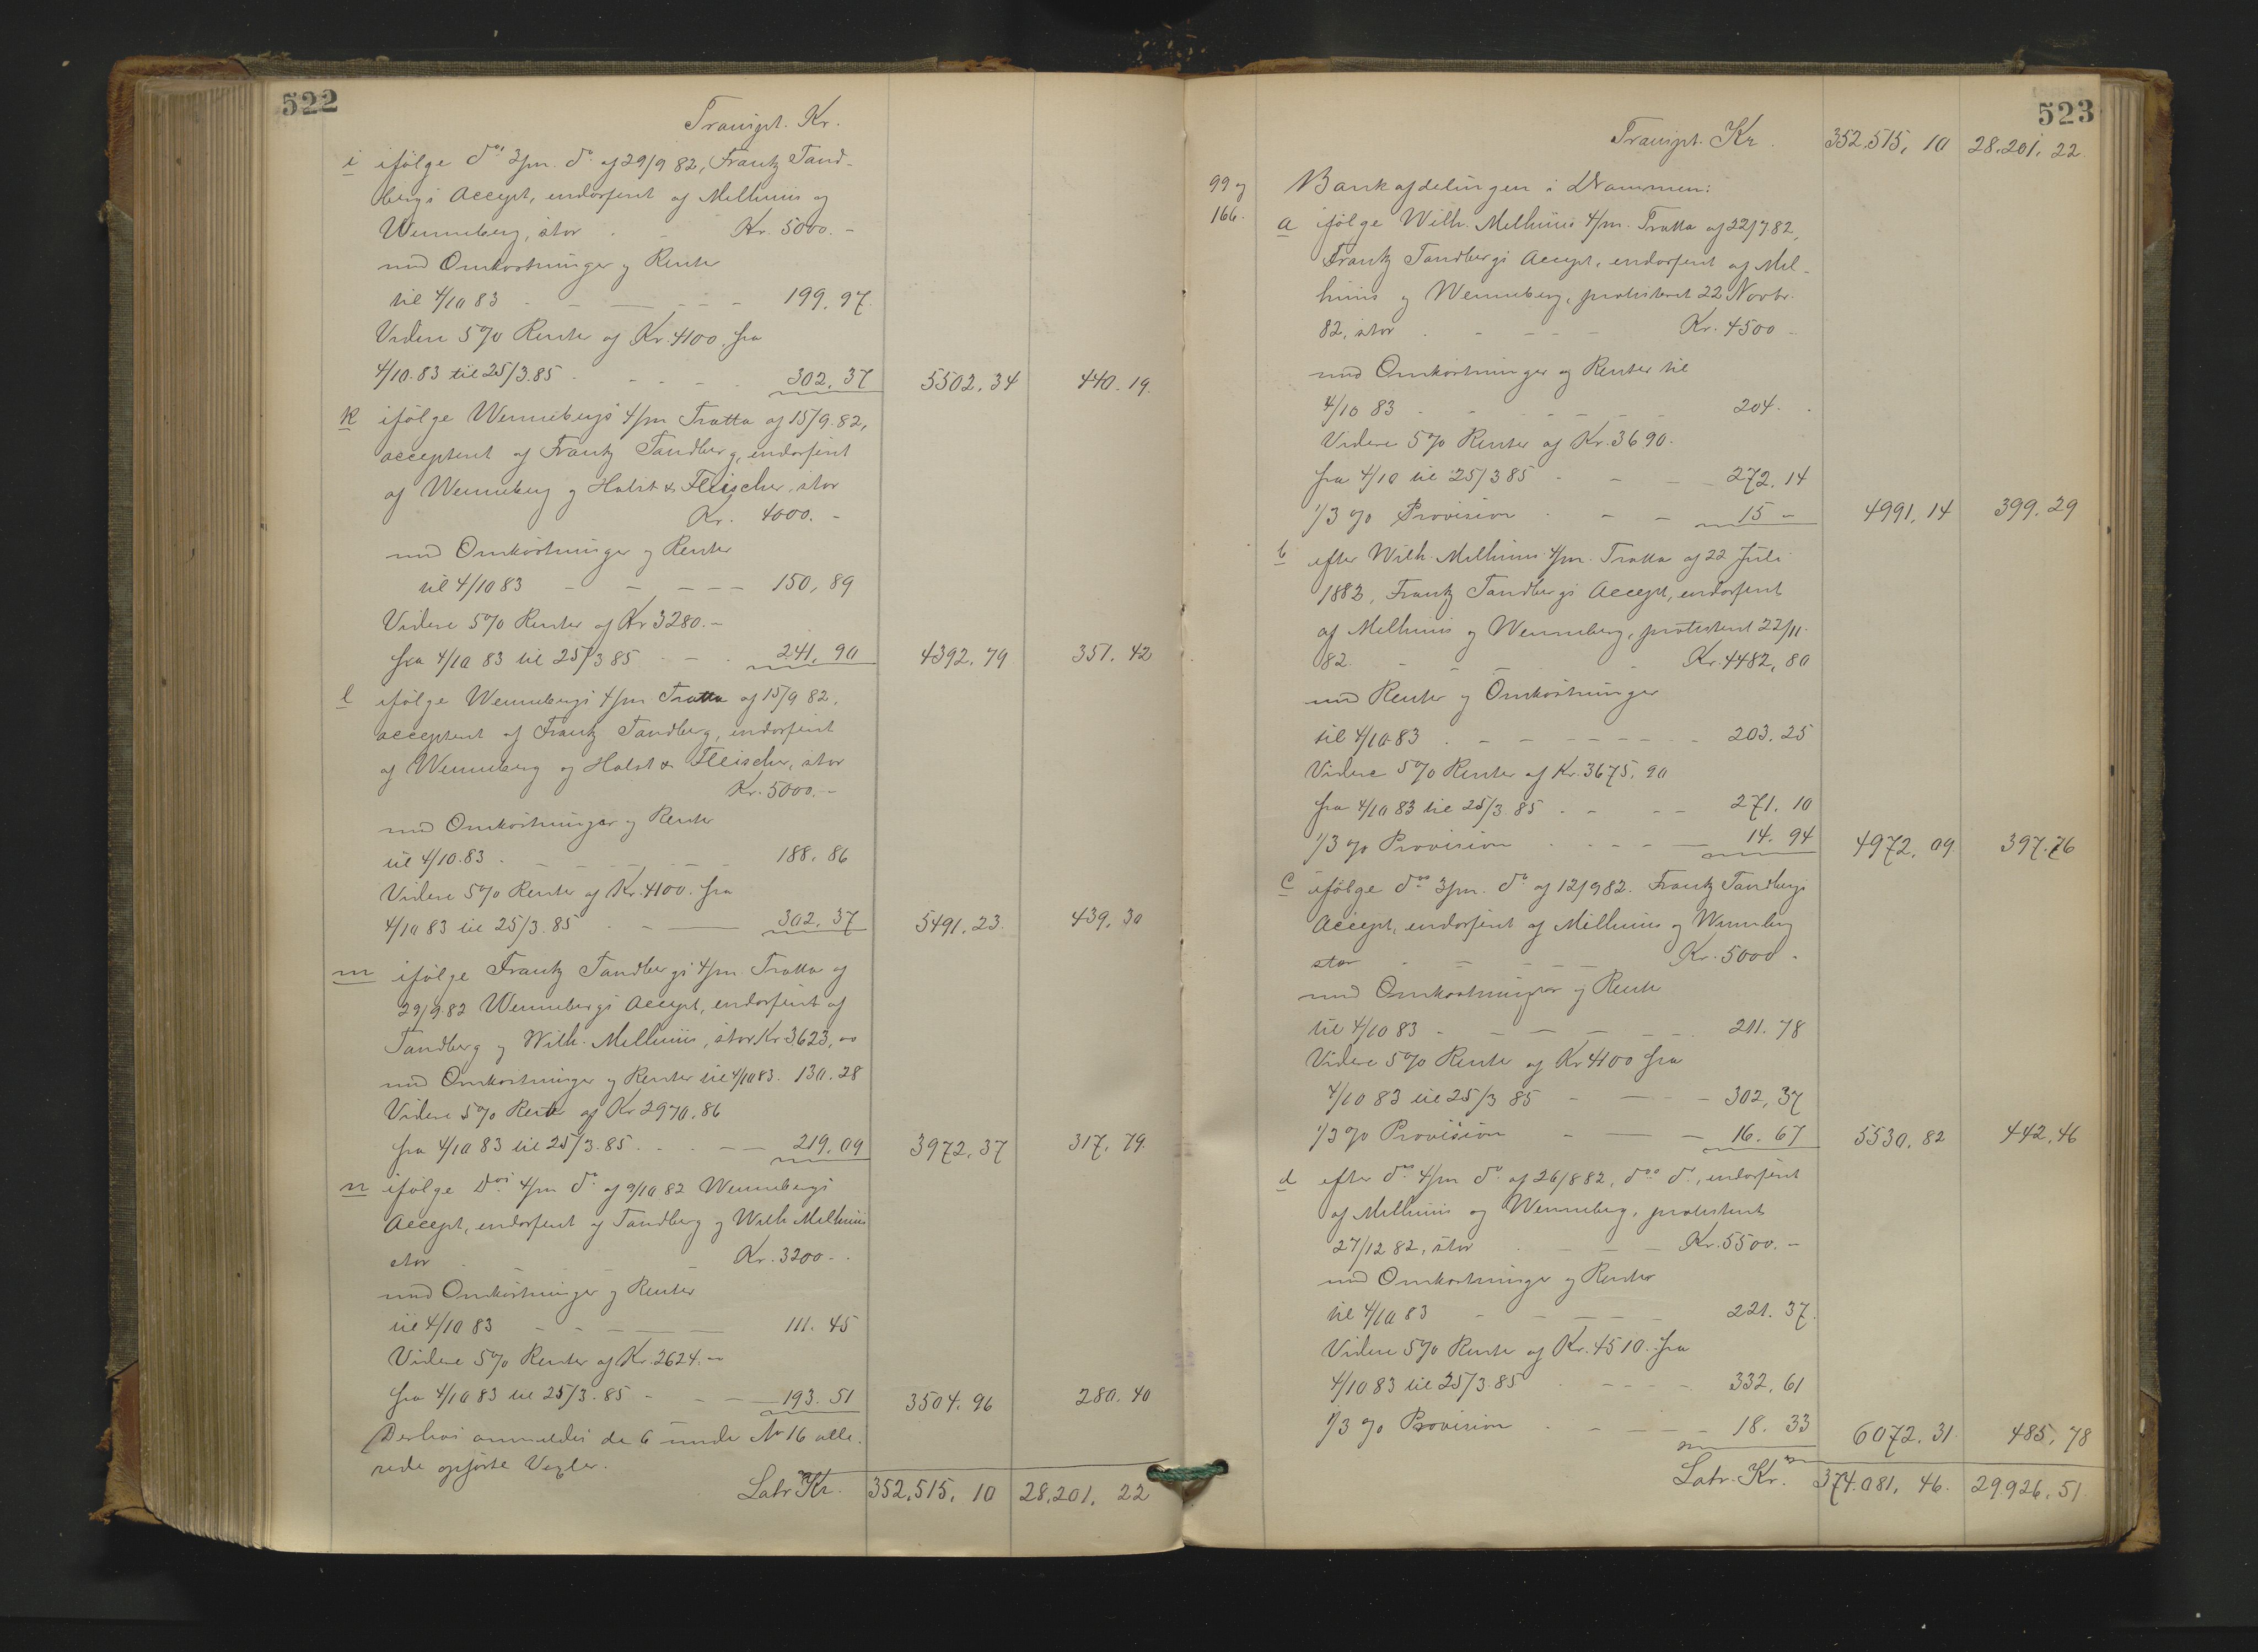 522
Transpt. Kr.
i ifölge do's 3/m. do. af 29/9 82, Frantz Tand-
bergs Accept, endossent af Melhuus og
Wenneberg, stor - Kr. 5000. -
med Omkostninger og Renter
til 4/10 83 - - - - - 199. 97.
Videre 5% Renter af Kr. 4100. fra
4/10.83 til 25/3.85 - - - - 302. 37 5502. 34 440. 19.
k ifölge Wennebergs 4/m Tratta af 15/9. 82,
acceptent af Frantz Tandberg, endossent
af Wenneberg og Holst & Fleischer, stor
Kr. 4000. -
med Omkostninger og Renter
til 4/10 83 - - - - - 150, 89
Videre 5% Renter af Kr 3280. -
fra 4/10 83 til 25/3 85 - - - 241. 90 4392. 79 351. 42
l ifölge Wennebergs 4/m Tratta af 15/9 82,
acceptent af Frantz Tandberg, endossent
af Wenneberg og Holst & Fleischer, stor
Kr. 5000. -
med Omkostninger og Renter
til 4/10.83 - - - - - - 188. 86
Videre 5% Renter af Kr. 4100. fra
4/10 83 til 25/3. 85 - - - 302. 37 5491. 23. 439. 30
m ifölge Frantz Tandbergs 4/m. Tratta af
29/9.82 Wennebergs Accept, endossent af
Tandberg og Wilh. Melhuus, stor Kr 3623, 00
med Omkostninger og Renter til 4/10 83. 130. 28
Videre 5% Renter af Kr 2970. 86
fra 4/10 83 til 25/3. 85 . . - - 219. 09 3972. 37 317. 79.
n ifölge Do's 4/m do. af 9/10 82 Wennebergs
Accept, endossent af Tandberg og Wilh Melhuus
stor Kr. 3200 - .
med Omkostninger og Renter
til 4/10 83 - - - - - 111. 45
Videre 5% Renter af Kr. 2624. -
fra 4/10 83 til 25/3. 85 - - - 193. 51 3504. 96 280. 40
Derhos anmeldes de 6 under No 16 alle-
rede opförte Vexler.
Latr. Kr. 352,515, 10 28,201. 22
523
Transpt. Kr. 352,515, 10 28.201. 22.
99 og
166.
Bankafdelingen i Drammen:
a ifölge Wilh. Melhuus 4/m. Tratta af 22/7 82,
Frantz Tandbergs Accept, endossent af Mel-
huus og Wenneberg, protesteret 22 Novbr.
82, stor - - - - Kr. 4500 -
med Omkostninger og Renter til
4/10 83 - - - - - - 204. .
Videre 5% Renter af Kr. 3690.
fra 4/10 til 25/3 85 - - - - 272. 14
1/3 % Provision - - - 15 - 4991, 14 399. 29
b efter Wilh Melhuus 4/m. Tratta af 22 Juli
1882, Frantz Tandbergs Accept, endossent
af Melhuus og Wenneberg, protestent 22/11.
82. - - - - Kr. 4482, 80
med Renter og Omkostninger
til 4/10 83 . - - - - - - 203. 25
Videre 5% Renter af Kr. 3675. 90
fra 4/10 83 til 25/3. 85 . - - - 271. 10
1/3 % Provision - - - - 14. 94 4972. 09 397. 76
c ifölge do's 3/m. do. af 12/9 82. Frantz Tandbergs
Accept, endossent af Melhuus og Wenneberg
stor - - - - Kr. 5000 -
med Omkostninger og Rente
til 4/10 83 - - - - - - 211. 78
Videre 5% Rente af Kr 4100 fra
4/10 83 til 25/3 85 - - - - 302, 37
1/3 % Provision - - - 16. 67 5530. 82 442. 46
d efter do's 4/m do. af 26/8 82, do's do., endossent
af Melhuus og Wenneberg, protestent
27/12 82, stor - - - Kr. 5500. -
med Omkostninger og Renter
til 4/10 83 - - - - - 221. 37.
Videre 5% Renter af Kr. 4510. fra
4/10 83 til 25/3. 85 - - - - 332. 61
1/3 % Provision - - - - 18. 33 6072. 31. 485, 78
Latr. Kr. 374.081, 46. 29.926. 51.